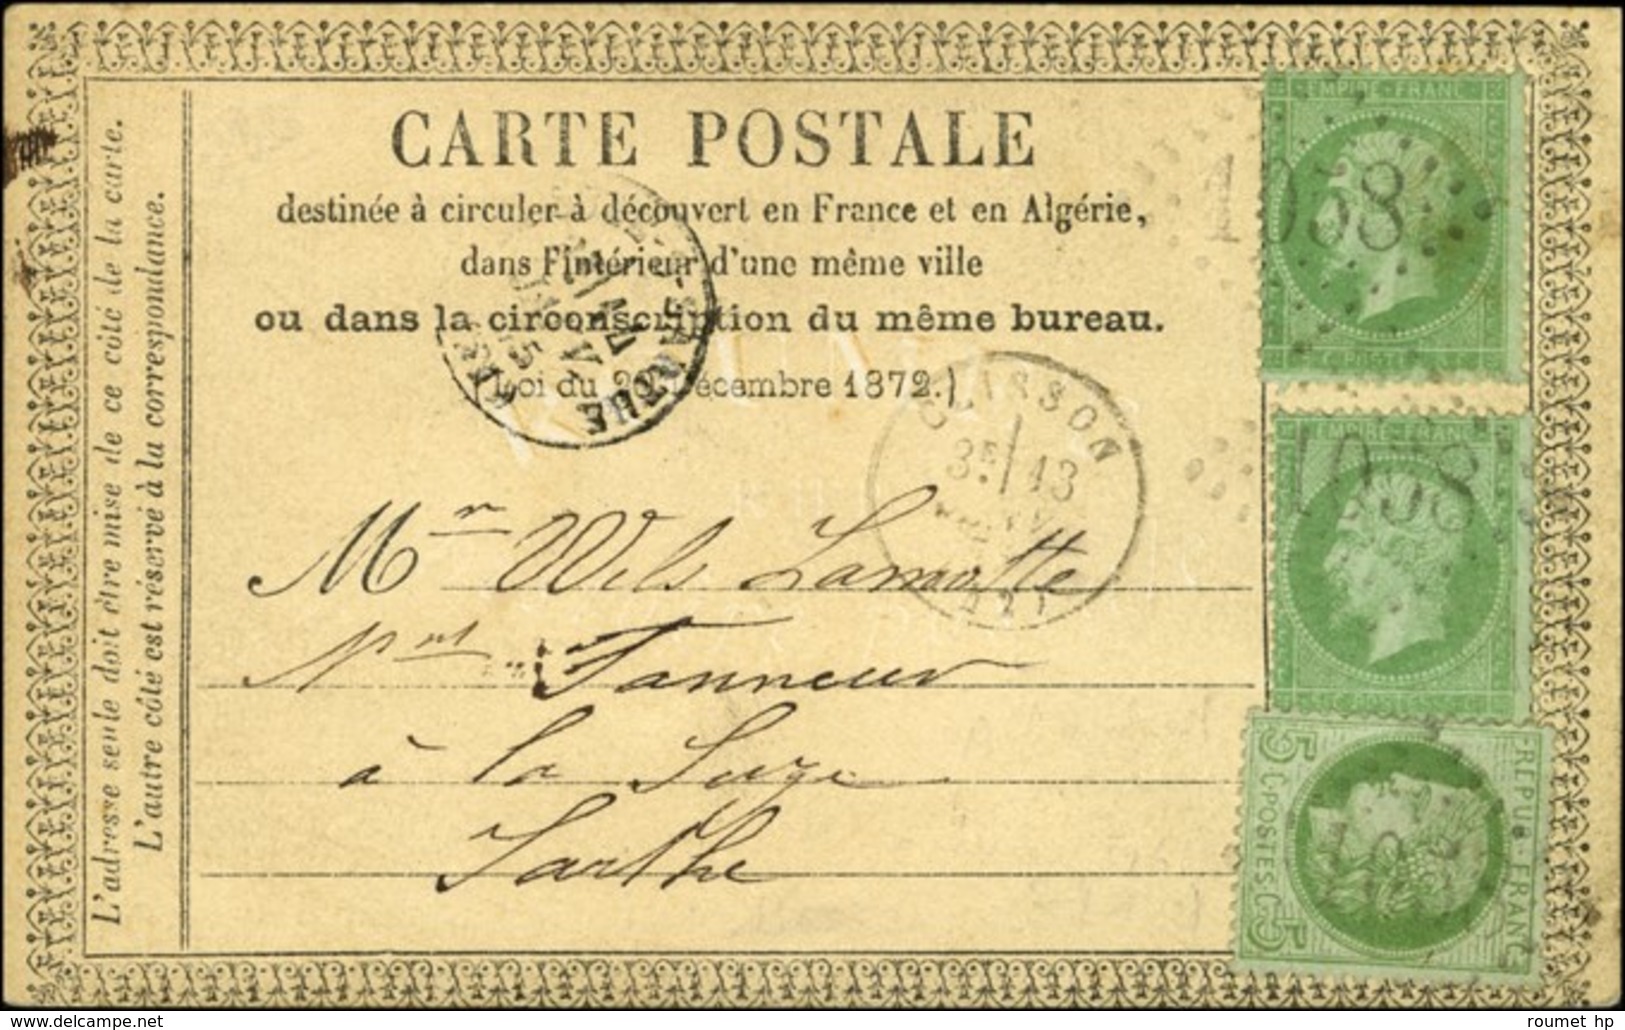 CARTE POSTALE
destinée à circuler à découvert en France et en Algérie,
dans l'intérieur d'une même ville
ou dans la circonscription du même bureau.
(Loi du 20 Décembre 1872.)
L'adresse seule doit être mise de ce côté de la carte.
L'autre côté est réservé à la correspondance.
CLISSON
3E 13
(42)
LA SUZE-SARTHE
Mr Wels Lamotte
Tanneur
à la Suze
Sarthe
EMPIRE FRANC
1038
C. POSTES
EMPIRE FRANC
1038
C. POSTES
5 C. POSTES. C. 5
REPUB. FRANC
1038
roumet hp